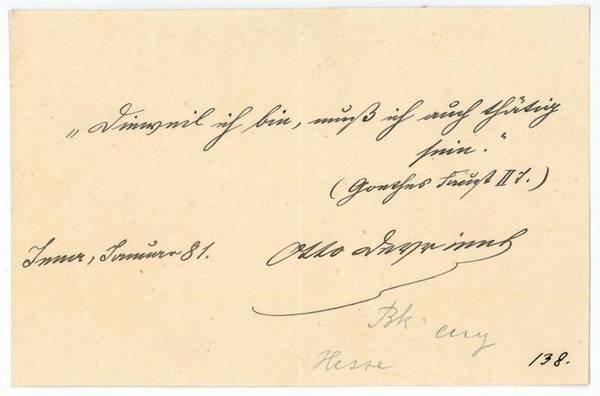 „Dieweil ich bin, muß ich auch thätig
sein."
(Goethes Faust II
Jena, Januar 81.
Otto Devrient
Bk
Hesse
138.